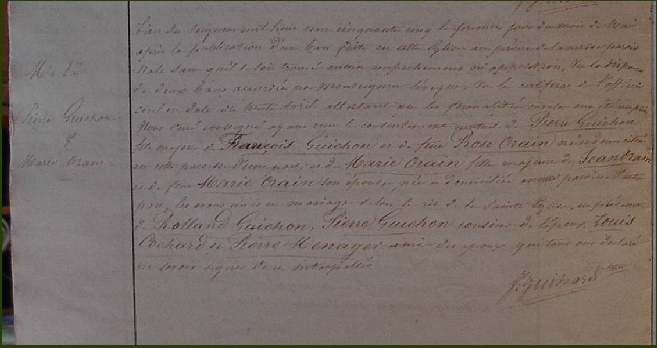 L'an du Seigneur mil huit cent cinquante cinq le premier jour du mois de Mai
après la publication d'un ban faite en cette église au prône de la messe parois
siale sans qu'il se soit trouvé aucun empêchement ou opposition, vu la dispense
de deux bans accordée par Monseigneur l'évêque, vu le certificat de l'officier
civil en date du trente Avril attestant que les formalités
Nous Curé soussigné avons reçu le consentement mutuel de Pierre Guichon
fils majeur de François Guichon et de feue Rose Orain
en cette paroisse d'une part, et de Marie Orain fille majeure de Jean Orain
et de feue Marie Orain son épouse, née et domiciliée en cette paroisse d'autre
part, les avons unis en mariage selon le rit de la Sainte église, en présence
de Rolland Guichon, Pierre Guichon cousins de l'époux, Louis
Orchard et Pierre Menager amis des époux qui tous ont déclaré
ne savoir signer de ce interpellés
Pierre Guichon
&
Marie Orain